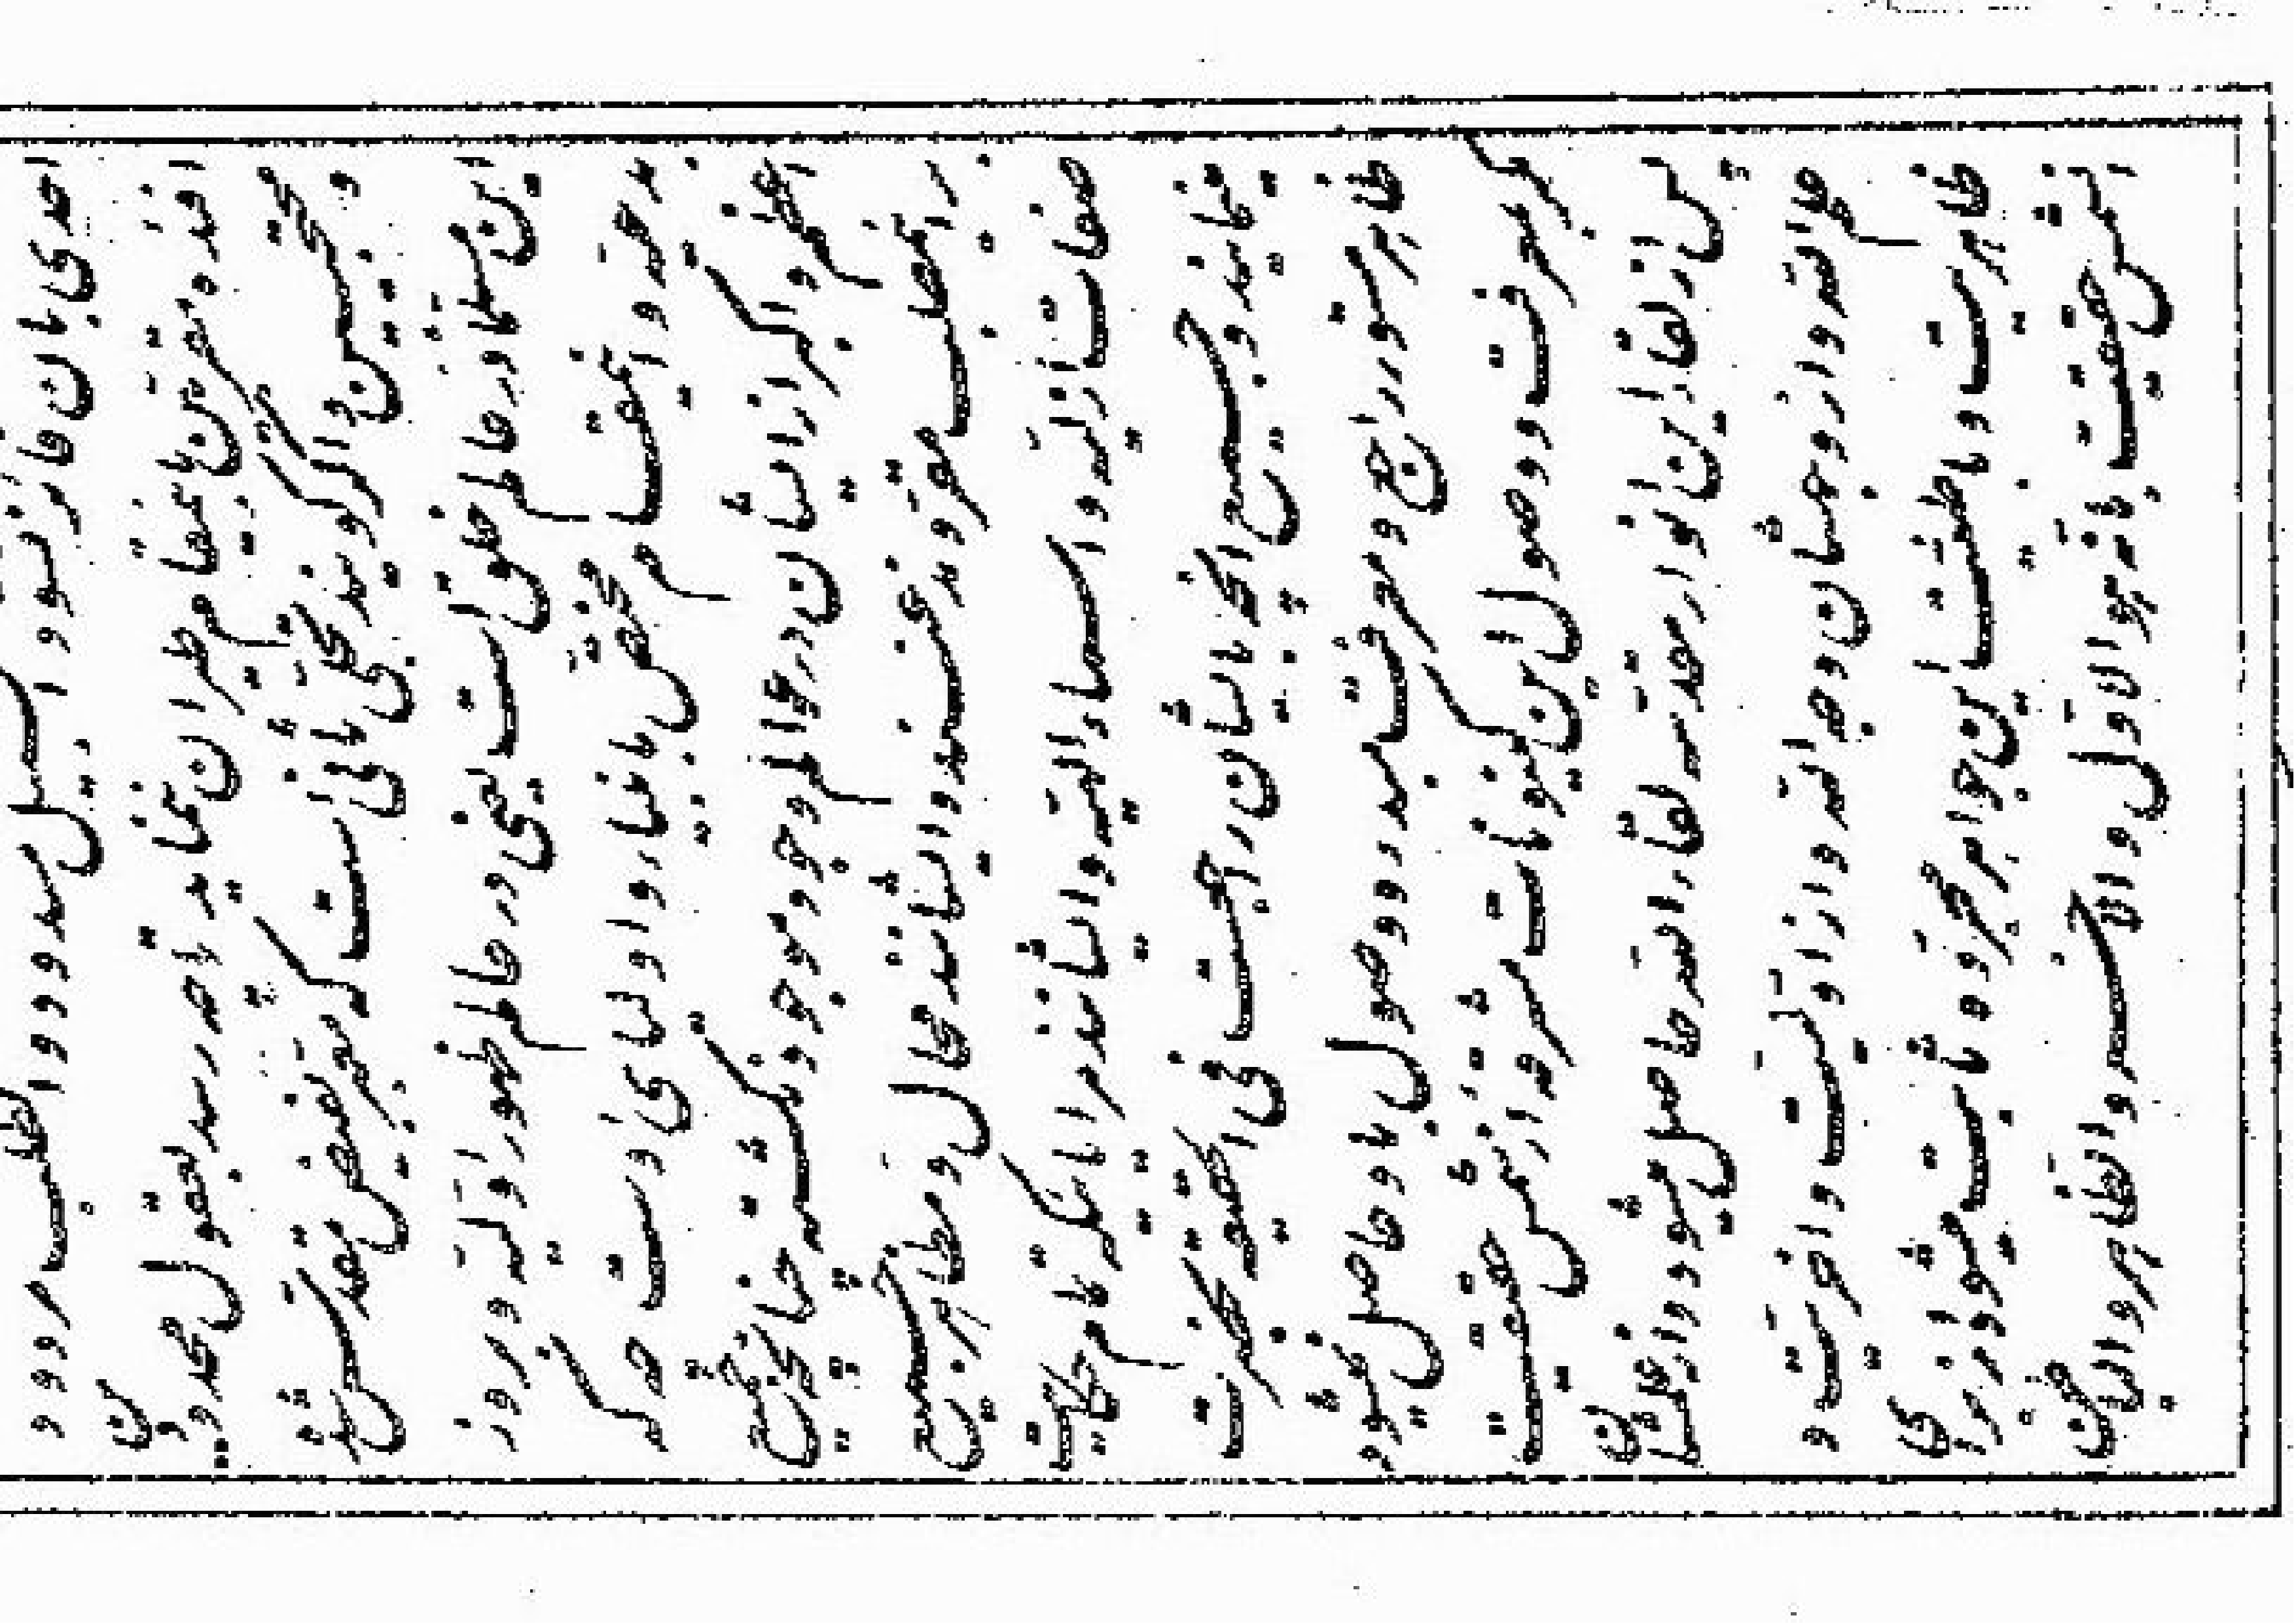 احدی بان فائز نشود السبیل مسدود و الطلب مردود و
افئده مقربین باینمقام طیران ننماید تا چه رسد بعقول محدودین
و محتجبین و اگر گویند تجلی ثانی است که معبر بفیض مقدس شده
این مسلما در عالم خلق است یعنی در عالم ظهور اولیه و بروز
بدعیه و این مقام مختص بانبیاء و اولیای اوست چه که
اعظم و اکبر از ایشان در عوالم وجود موجود نگشته چنانچه جمیع
بر این مطلب مقر و مذعنند و ایشانند محال و مظاهر جمیع
صفات ازلیه و اسماء الهیه و ایشانند مرایائیکه تمام حکایت
مینمایند و جمیع آنچه بایشان راجعست فی الحقیقه بحضرت
ظاهر مستور راجع و معرفت مبدء و وصول باو حاصل نمیشود
مگر بمعرفت و وصول این کینونات مشرقه از شمس حقیقت
پس از لقاء این انوار مقدسه لقاء الله حاصل میشود و از علمشان
علم الله و از وجهشان وجه الله و از اولیت و اخریت و
ظاهریت و باطنیت این جواهر مجرده ثابت میشود از برای
ان شمس حقیقت بانه هو الاول و الاخر و الظاهر و الباطن